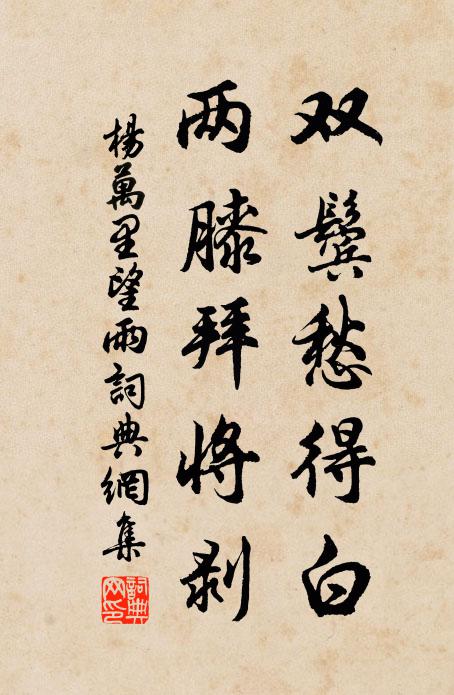 双鬓愁得白
两膝拜将剥
楊萬里望雨詞典網集
詞典网印